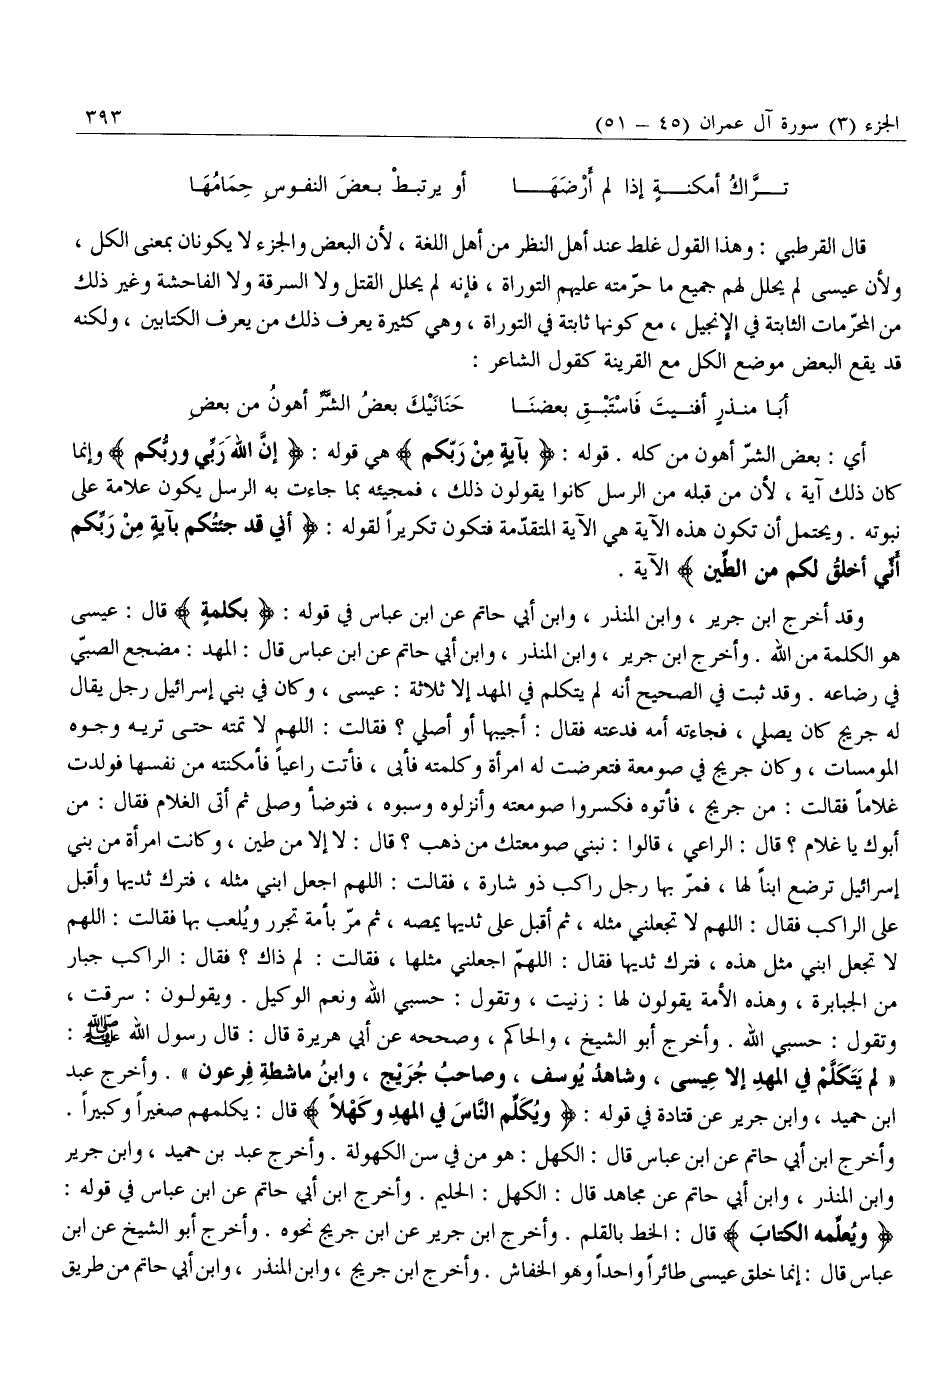 الجزء (٣) سورة آل عمران (٤٥ – ٥١) ٣٩٣
تــرَّاكُ أمكنــةٍ إذا لم أَرْضَهَــا أو يرتبطْ بعضَ النفوسِ حِمَامُهَا
قال القرطبي : وهذا القول غلط عند أهل النظر من أهل اللغة ، لأن البعض والجزء لا يكونان بمعنى الكل ،
ولأن عيسى لم يحلل لهم جميع ما حرّمته عليهم التوراة ، فإنه لم يحلل القتل ولا السرقة ولا الفاحشة وغير ذلك
من المحرّمات الثابتة في الإنجيل ، مع كونها ثابتة في التوراة ، وهي كثيرة يعرف ذلك من يعرف الكتابين ، ولكنه
قد يقع البعض موضع الكل مع القرينة كقول الشاعر :
أبَا منذرٍ أفنيتَ فَاسْتَبْـقِ بعضنَـا حَنَانَيْكَ بعضُ الشرِّ أهونُ من بعضِ
أي : بعض الشرّ أهون من كله . قوله : ﴿ بآيةٍ مِنْ رَبّكم ﴾ هي قوله : ﴿ إنَّ اللهَ رَبِّي وربُّكم ﴾ وإنما
كان ذلك آية ، لأن من قبله من الرسل كانوا يقولون ذلك ، فمجيئه بما جاءت به الرسل يكون علامة على
نبوته . ويحتمل أن تكون هذه الآية هي الآية المتقدّمة فتكون تكريراً لقوله : ﴿ أني قد جئتُكم بآيةٍ مِنْ رَبِّكم
أَنّي أخلقُ لكم من الطِّين ﴾ الآية .
وقد أخرج ابن جرير ، وابن المنذر ، وابن أبي حاتم عن ابن عباس في قوله : ﴿ بكلمةٍ ﴾ قال : عيسى
هو الكلمة من الله . وأخرج ابن جرير ، وابن المنذر ، وابن أبي حاتم عن ابن عباس قال : المهد : مضجع الصبيّ
في رضاعه . وقد ثبت في الصحيح أنه لم يتكلم في المهد إلا ثلاثة : عيسى ، وكان في بني إسرائيل رجل يقال
له جريج كان يصلي ، فجاءته أمه فدعته فقال : أجيبها أو أصلي ؟ فقالت : اللهم لا تمته حتـى تريـه وجـوه
المومسات ، وكان جريج في صومعة فتعرضت له امرأة وكلمته فأبى ، فأتت راعياً فأمكنته من نفسها فولدت
غلاماً فقالت : من جريج ، فأتوه فكسروا صومعته وأنزلوه وسبوه ، فتوضأ وصلى ثم أتى الغلام فقال : من
أبوك يا غلام ؟ قال : الراعي ، قالوا : نبني صومعتك من ذهب ؟ قال : لا إلا من طين ، وكانت امرأة من بني
إسرائيل ترضع ابناً لها ، فمرّ بها رجل راكب ذو شارة ، فقالت : اللهم اجعل ابني مثله ، فترك ثديها وأقبل
على الراكب فقال : اللهم لا تجعلني مثله ، ثم أقبل على ثديها يمصه ، ثم مرّ بأمة تجرر ويُلعب بها فقالت : اللهم
لا تجعل ابني مثل هذه ، فترك ثديها فقال : اللهمّ اجعلني مثلها ، فقالت : لم ذاك ؟ فقال : الراكب جبار
من الجبابرة ، وهذه الأمة يقولون لها : زنيت ، وتقول : حسبي الله ونعم الوكيل . ويقولـون : سرقت ،
وتقول : حسبي الله . وأخرج أبو الشيخ ، والحاكم ، وصححه عن أبي هريرة قال : قال رسول الله ﷺ :
« لم يَتَكلَّمْ في المهدِ إلا عِيسى ، وشاهدُ يُوسف ، وصاحبُ جُرَيْج ، وابنُ ماشطةِ فِرعون » . وأخرج عبد
ابن حميد ، وابن جرير عن قتادة في قوله : ﴿ ويُكَلّم النَّاسَ في المهدِ وكَهْلاً ﴾ قال : يكلمهم صغيراً وكبيراً .
وأخرج ابن أبي حاتم عن ابن عباس قال : الكهل : هو من في سن الكهولة . وأخرج عبد بن حميد ، وابن جرير
وابن المنذر ، وابن أبي حاتم عن مجاهد قال : الكهل : الحليم . وأخرج ابن أبي حاتم عن ابن عباس في قوله :
﴿ ويُعلّمه الكتابَ ﴾ قال : الخط بالقلم . وأخرج ابن جرير عن ابن جريج نحوه . وأخرج أبو الشيخ عن ابن
عباس قال : إنما خلق عيسى طائراً واحداً وهو الخفاش . وأخرج ابن جريج ، وابن المنذر ، وابن أبي حاتم من طريق